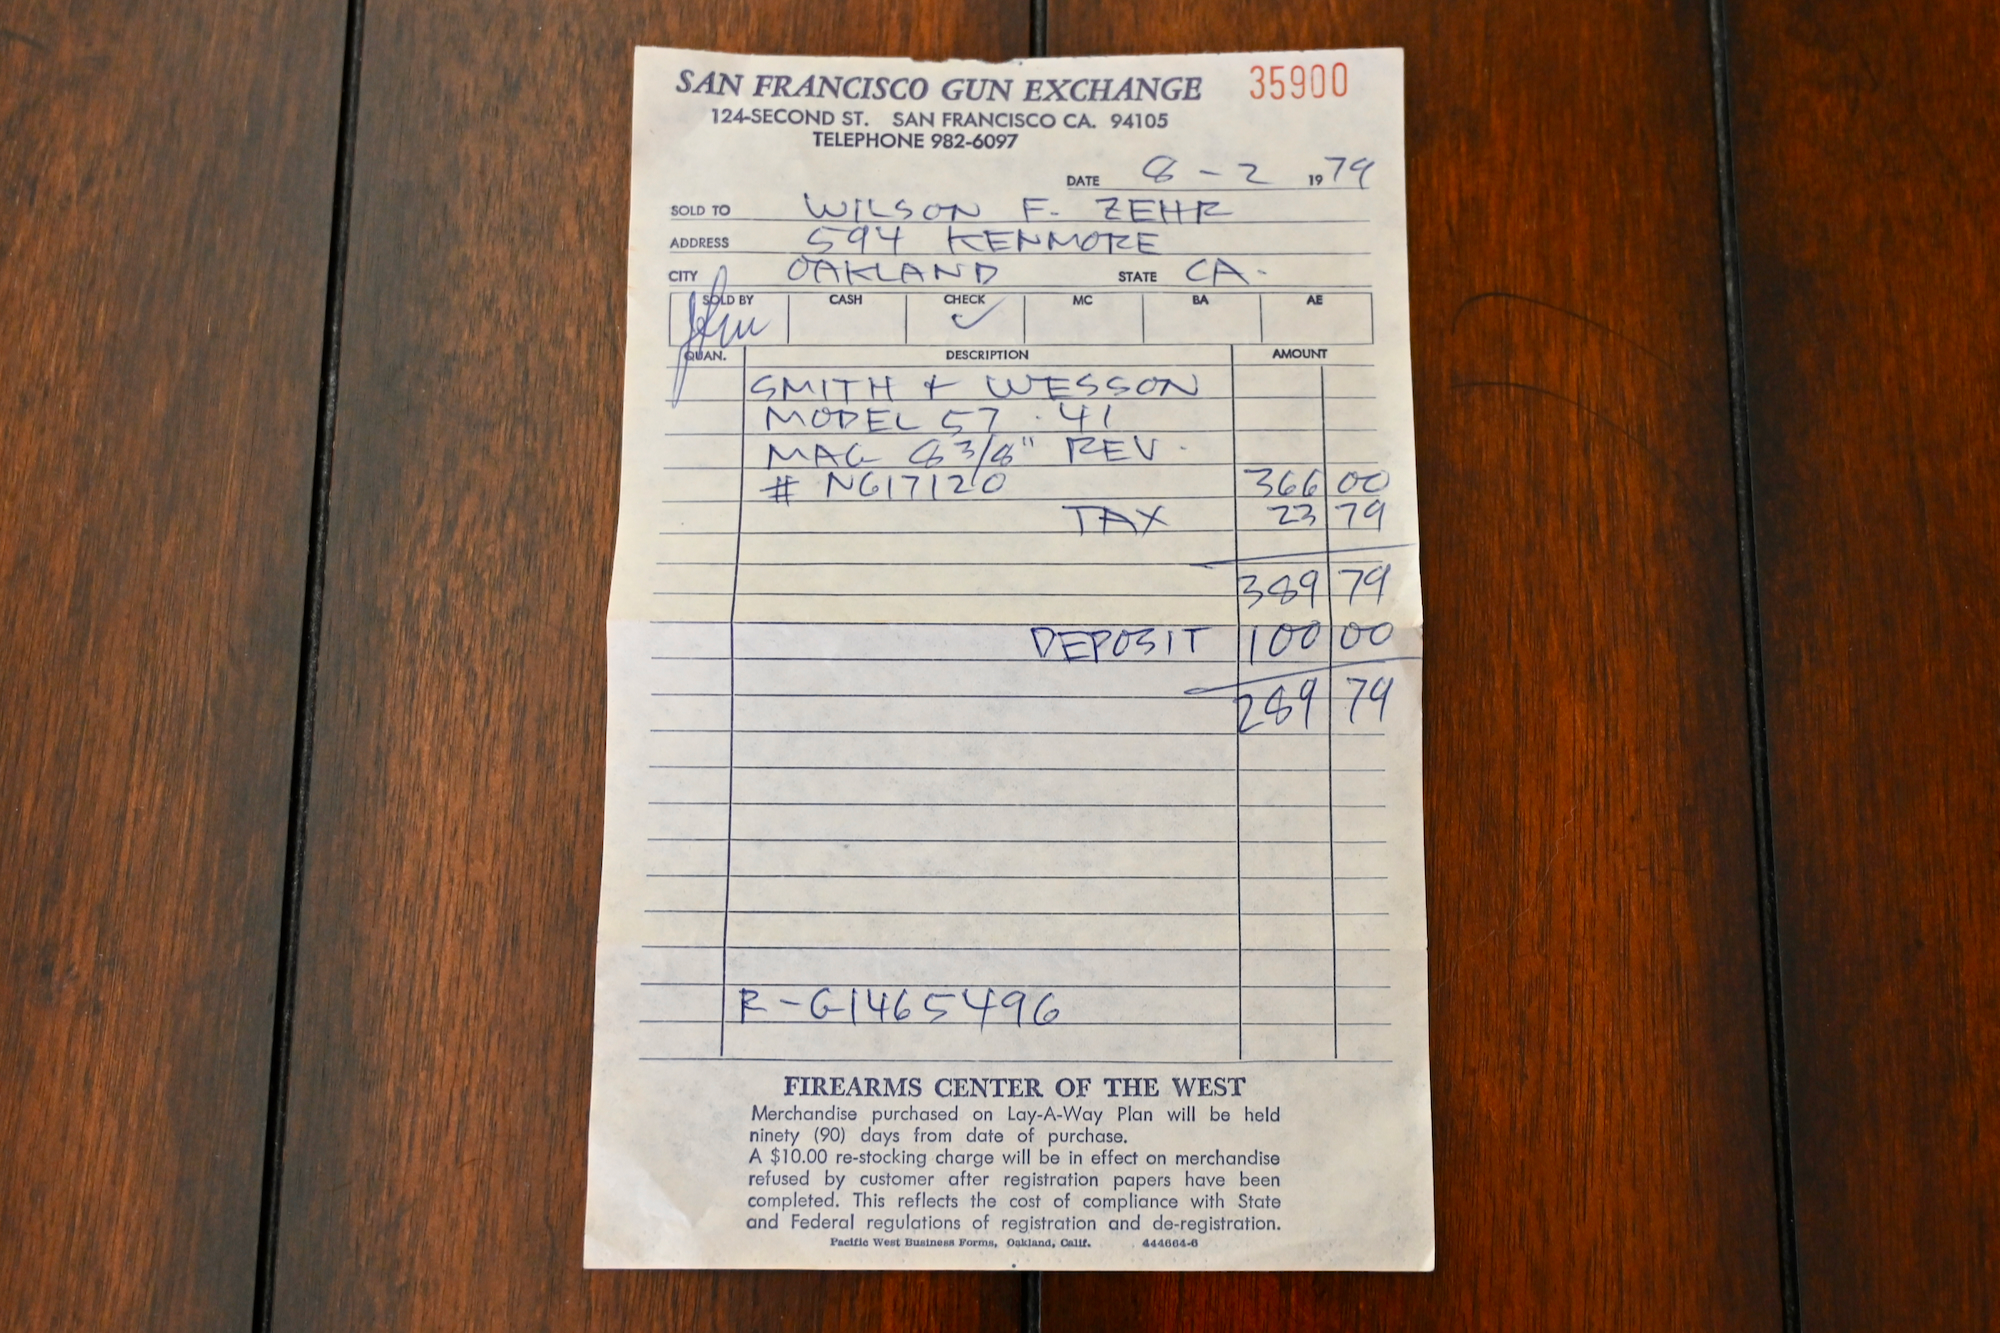 SAN FRANCISCO GUN EXCHANGE 35900
124-SECOND ST. SAN FRANCISCO CA. 94105
TELEPHONE 982-6097
DATE 8-2 1979
SOLD TO WILSON F. ZEHR
ADDRESS 594 KENMORE
CITY OAKLAND STATE CA.
SOLD BY CASH CHECK ✓ MC BA AE
QUAN. DESCRIPTION AMOUNT
SMITH + WESSON
MODEL 57 .41
MAG 8 3/8" REV.
# N617120 366 00
TAX 23 79
389 79
DEPOSIT 100 00
289 79
R-G1465496
FIREARMS CENTER OF THE WEST
Merchandise purchased on Lay-A-Way Plan will be held
ninety (90) days from date of purchase.
A $10.00 re-stocking charge will be in effect on merchandise
refused by customer after registration papers have been
completed. This reflects the cost of compliance with State
and Federal regulations of registration and de-registration.
Pacific West Business Forms, Oakland, Calif. 444664-6